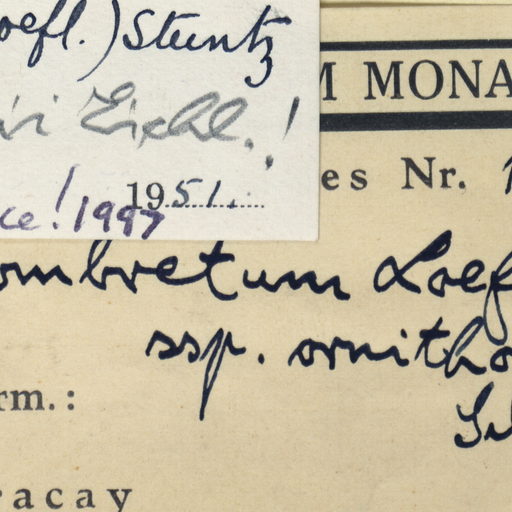 oefl.) Stuntz
Eichl.!
1951.
ce! 1997
M MONA
es Nr. 1
ombretum Loef
ssp. ornitho
rm.:
racay